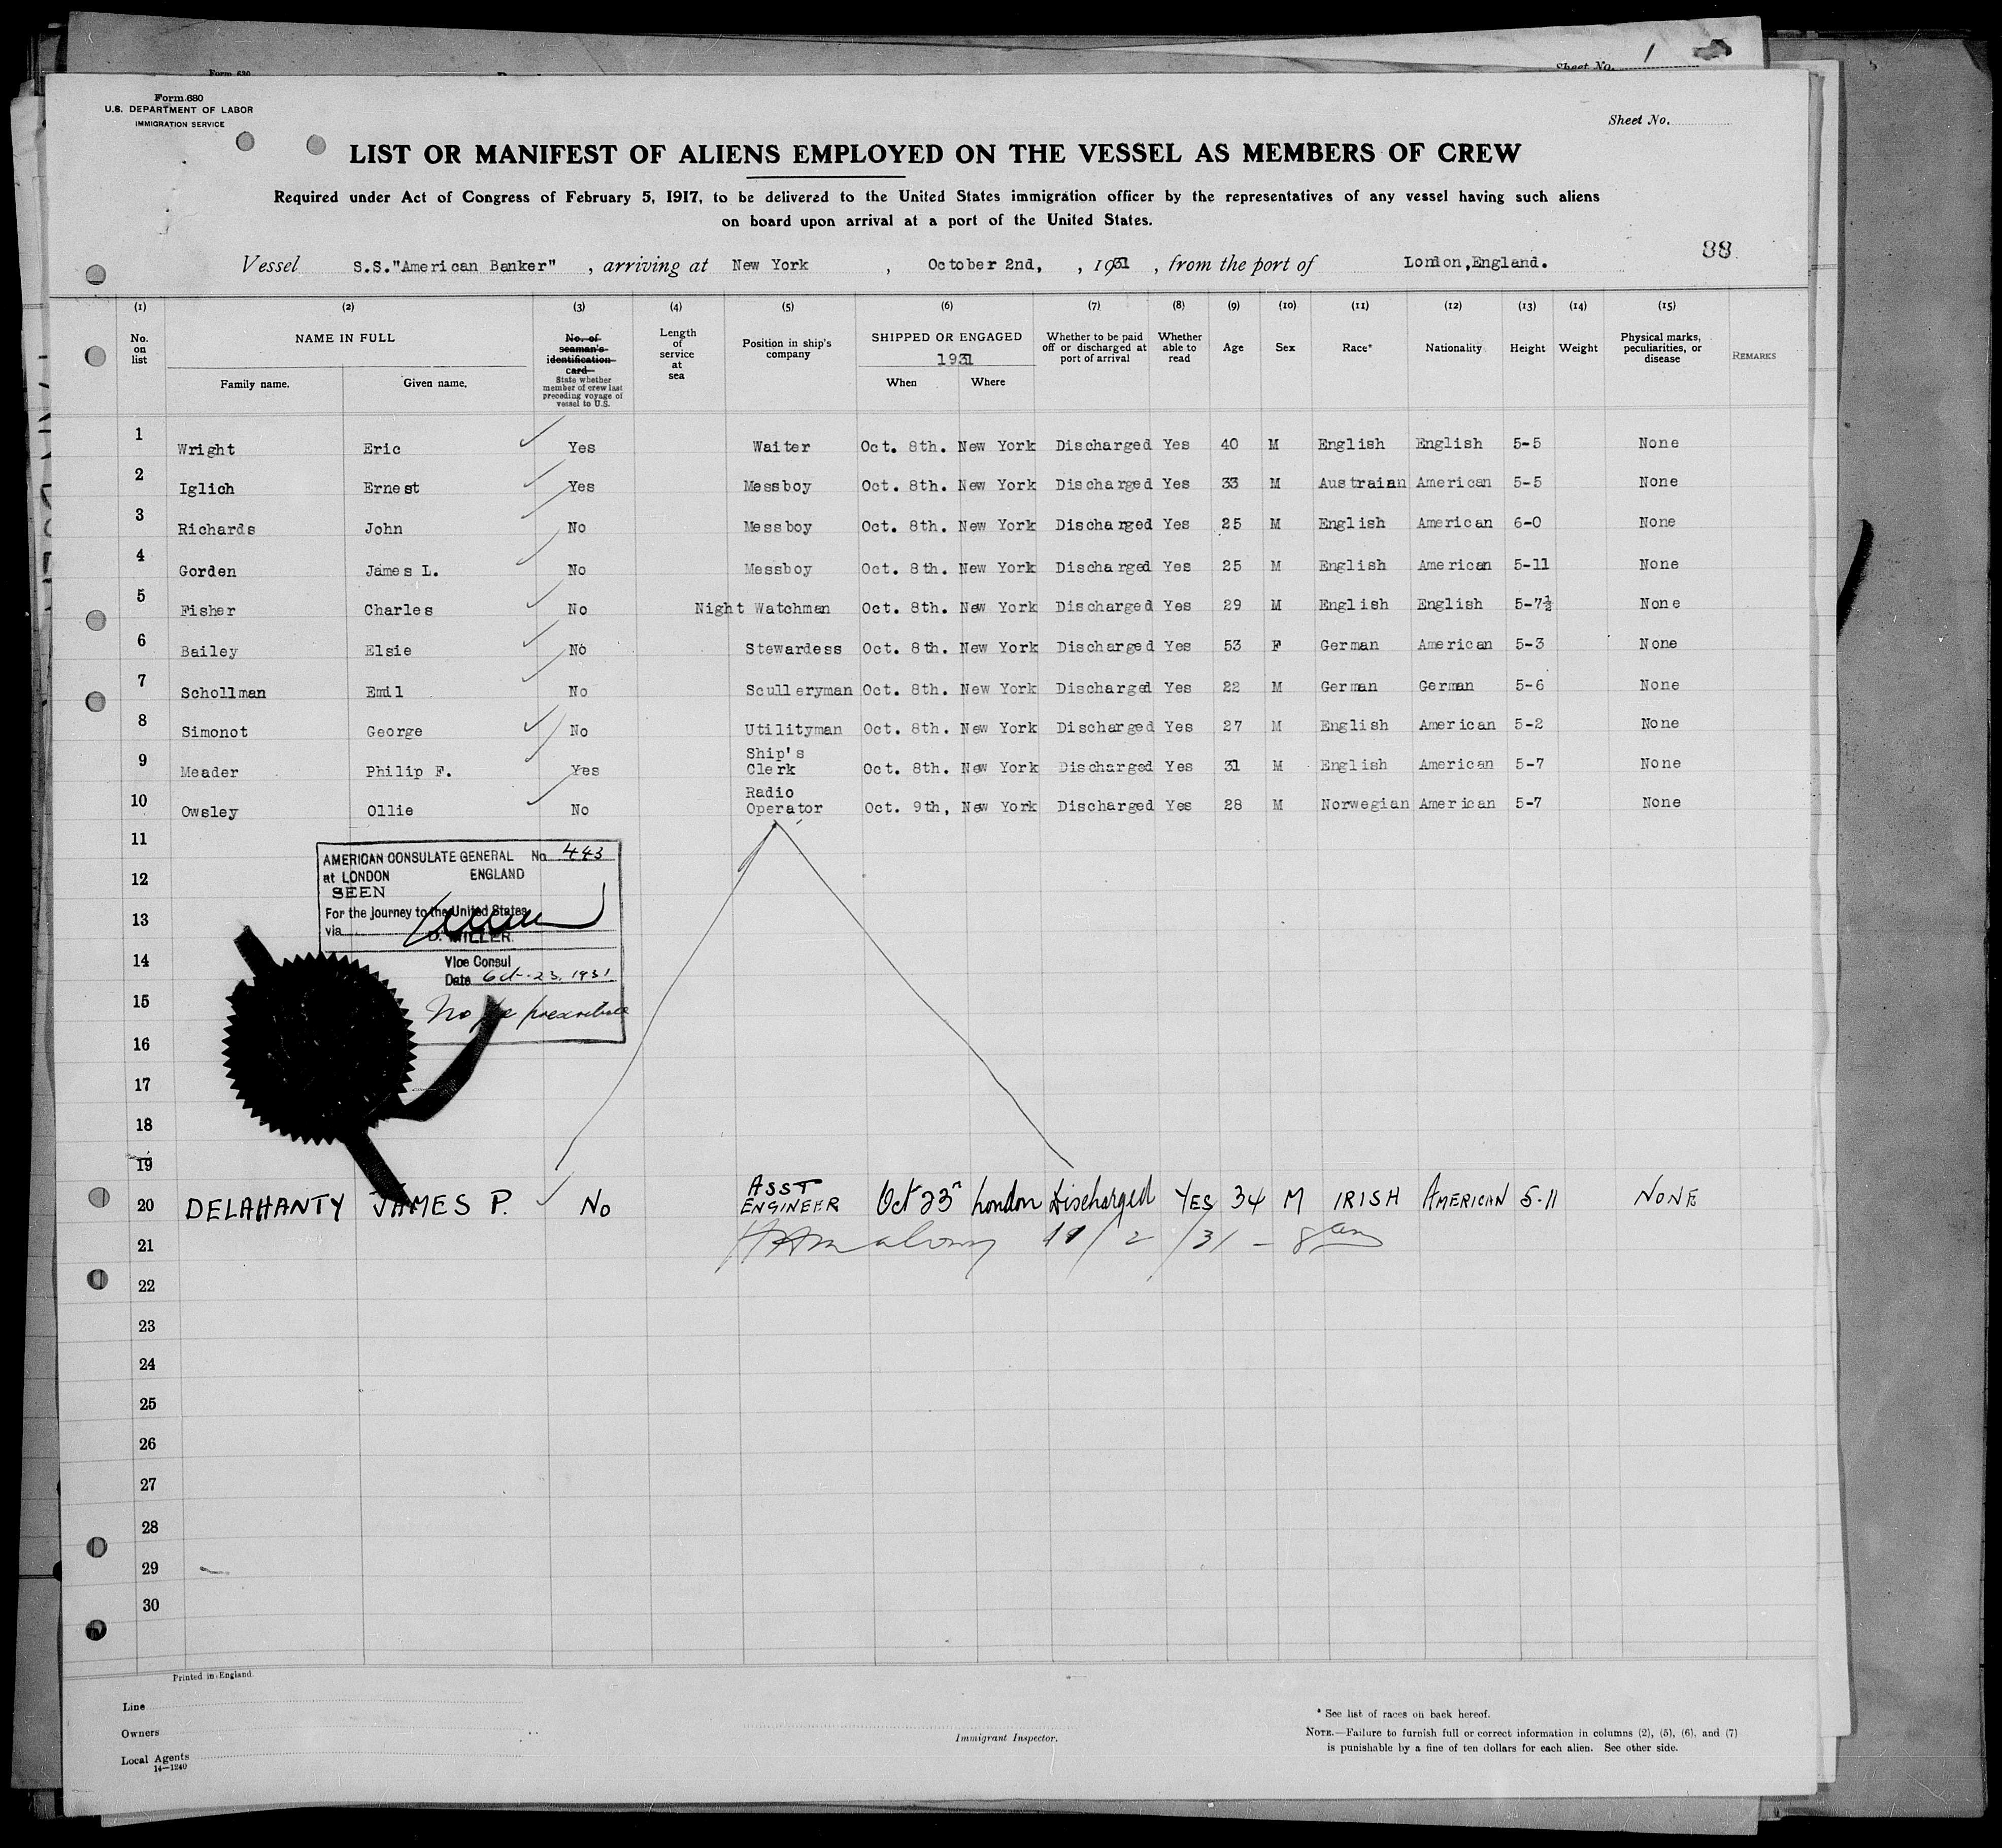 Form 630
Sheet No. 1
Form 680
U.S. DEPARTMENT OF LABOR
IMMIGRATION SERVICE
Sheet No.
LIST OR MANIFEST OF ALIENS EMPLOYED ON THE VESSEL AS MEMBERS OF CREW
Required under Act of Congress of February 5, 1917, to be delivered to the United States immigration officer by the representatives of any vessel having such aliens
on board upon arrival at a port of the United States.
88
Vessel S.S."American Banker" , arriving at New York , October 2nd, , 1931 , from the port of London,England.
(1) (2) (3) (4) (5) (6) (7) (8) (9) (10) (11) (12) (13) (14) (15)
No. on list
NAME IN FULL
Family name. Given name.
No. of seaman's identification card
State whether member of crew last preceding voyage of vessel to U.S.
Length of service at sea
Position in ship's company
SHIPPED OR ENGAGED
1931
When Where
Whether to be paid off or discharged at port of arrival
Whether able to read
Age
Sex
Race*
Nationality
Height
Weight
Physical marks, peculiarities, or disease
REMARKS
1 Wright Eric Yes Waiter Oct. 8th. New York Discharged Yes 40 M English English 5-5 None
2 Iglich Ernest Yes Messboy Oct. 8th. New York Discharged Yes 33 M Austraian American 5-5 None
3 Richards John No Messboy Oct. 8th. New York Discharged Yes 25 M English American 6-0 None
4 Gorden James L. No Messboy Oct. 8th. New York Discharged Yes 25 M English American 5-11 None
5 Fisher Charles No Night Watchman Oct. 8th. New York Discharged Yes 29 M English English 5-7½ None
6 Bailey Elsie No Stewardess Oct. 8th. New York Discharged Yes 53 F German American 5-3 None
7 Schollman Emil No Sculleryman Oct. 8th. New York Discharged Yes 22 M German German 5-6 None
8 Simonot George No Utilityman Oct. 8th. New York Discharged Yes 27 M English American 5-2 None
9 Meader Philip F. Yes Ship's Clerk Oct. 8th. New York Discharged Yes 31 M English American 5-7 None
10 Owsley Ollie No Radio Operator Oct. 9th, New York Discharged Yes 28 M Norwegian American 5-7 None
11
AMERICAN CONSULATE GENERAL No. 443
at LONDON ENGLAND
12
SEEN
For the journey to the United States
13
via
D. MILLER
14
Vice Consul
Date Oct. 23, 1931
15
No fee prescribed
16
17
18
19
20 DELAHANTY JAMES P. No ASST ENGINEER Oct 23rd London Discharged YES 34 M IRISH AMERICAN 5-11 NONE
21 11/2/31 - 8am
22
23
24
25
26
27
28
29
30
Printed in England
Line
Owners
Local Agents
14—1240
Immigrant Inspector.
* See list of races on back hereof.
NOTE.—Failure to furnish full or correct information in columns (2), (5), (6), and (7)
is punishable by a fine of ten dollars for each alien. See other side.